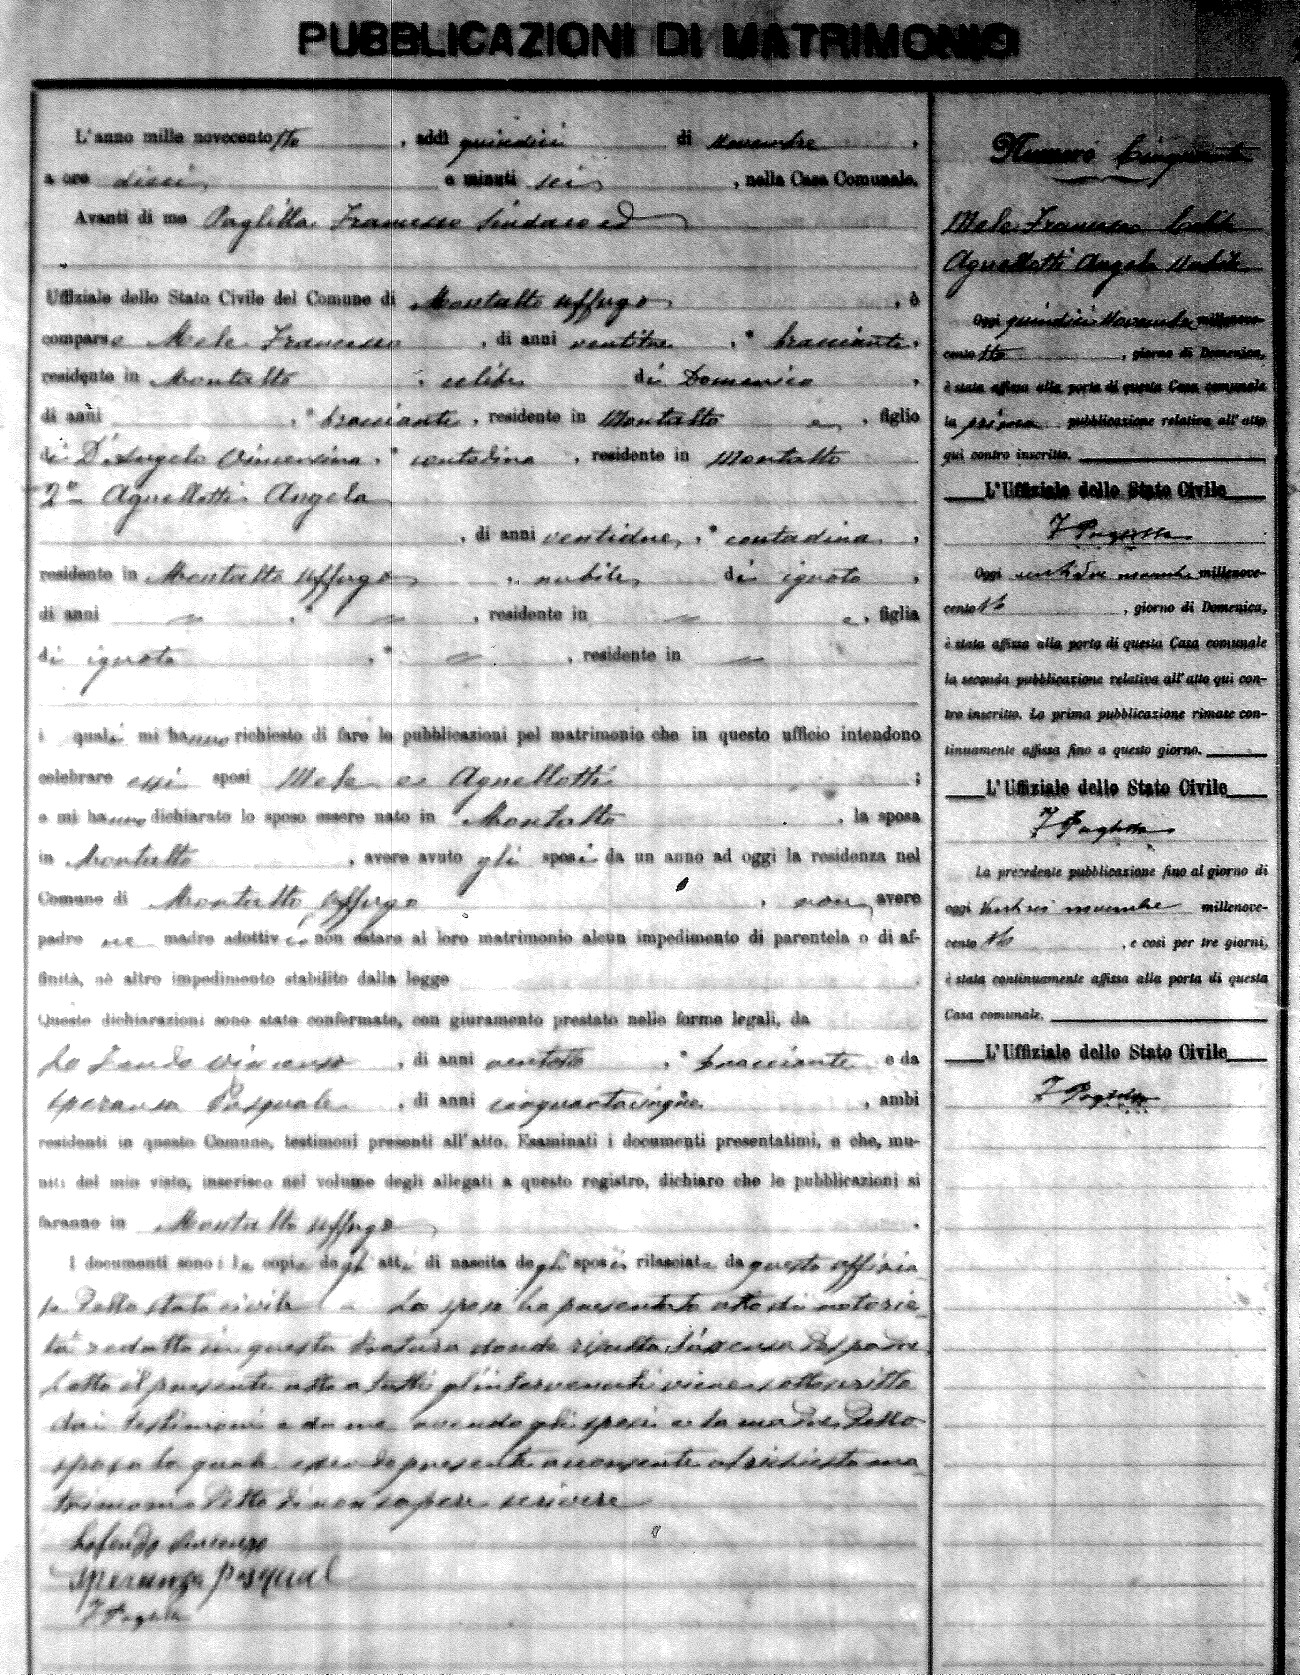 PUBBLICAZIONI DI MATRIMONIO
L'anno mille novecento otto, addì quindici di novembre,
a ore dieci e minuti sei, nella Casa Comunale.
Avanti di me Paglilla Francesco Sindaco ed
Uffiziale dello Stato Civile del Comune di Montalto Uffugo, è
comparso Mele Francesco, di anni ventitre, bracciante,
residente in Montalto, celibe di Domenico,
di anni , bracciante, residente in Montalto e, figlio
di D'Angelo Vincenzina, contadina, residente in Montalto
2° Agnellotti Angela
, di anni ventidue, contadina,
residente in Montalto Uffugo, nubile, di ignoto,
di anni " , " , residente in " e, figlia
di ignota , " , residente in "
i quali mi hanno richiesto di fare le pubblicazioni pel matrimonio che in questo ufficio intendono
celebrare essi sposi Mele e Agnellotti ;
e mi hanno dichiarato lo sposo essere nato in Montalto, la sposa
in Montalto, avere avuto gli sposi da un anno ad oggi la residenza nel
Comune di Montalto Uffugo, non avere
padre ne madre adottivi, non ostare al loro matrimonio alcun impedimento di parentela o di af-
finità, nè altro impedimento stabilito dalla legge
Queste dichiarazioni sono state confermate, con giuramento prestato nelle forme legali, da
Lo Feudo Vincenzo, di anni ventotto, bracciante e da
Speranza Pasquale, di anni cinquantacinque, ambi
residenti in questo Comune, testimoni presenti all'atto. Esaminati i documenti presentatimi, e che, mu-
niti del mio visto, inserisco nel volume degli allegati a questo registro, dichiaro che le pubblicazioni si
faranno in Montalto Uffugo.
I documenti sono: le copie degli atti di nascita degli sposi rilasciate da questo uffizia-
le dello stato civile Lo sposo ha presentato atto di notorie-
tà redatto in questa Pretura donde risulta l'assenza del padre
Letto il presente atto a tutti gl'intervenuti viene sottoscritto
dai testimoni e da me avendo gli sposi e la madre dello
sposo la quale essendo presente acconsente al richiesto ma-
trimonio detto di non sapere scrivere
Lofeudo Vincenzo
Speranza Pasqual
F Paglilla
Numero Cinquanta
Mele Francesco Celibe
Agnellotti Angela Nubile
Oggi quindici Novembre millenove-
cento otto, giorno di Domenica,
è stata affissa alla porta di questa Casa comunale
la prima pubblicazione relativa all'atto
qui contro inscritto.
L'Uffiziale dello Stato Civile
F Paglilla
Oggi ventidue novembre millenove-
cento otto, giorno di Domenica,
è stata affissa alla porta di questa Casa comunale
la seconda pubblicazione relativa all'atto qui con-
tro inscritto. La prima pubblicazione rimase con-
tinuamente affissa fino a questo giorno.
L'Uffiziale dello Stato Civile
F Paglilla
La precedente pubblicazione fino al giorno di
oggi novembre millenove-
cento otto, e così per tre giorni,
è stata continuamente affissa alla porta di questa
Casa comunale.
L'Uffiziale dello Stato Civile
F Paglilla